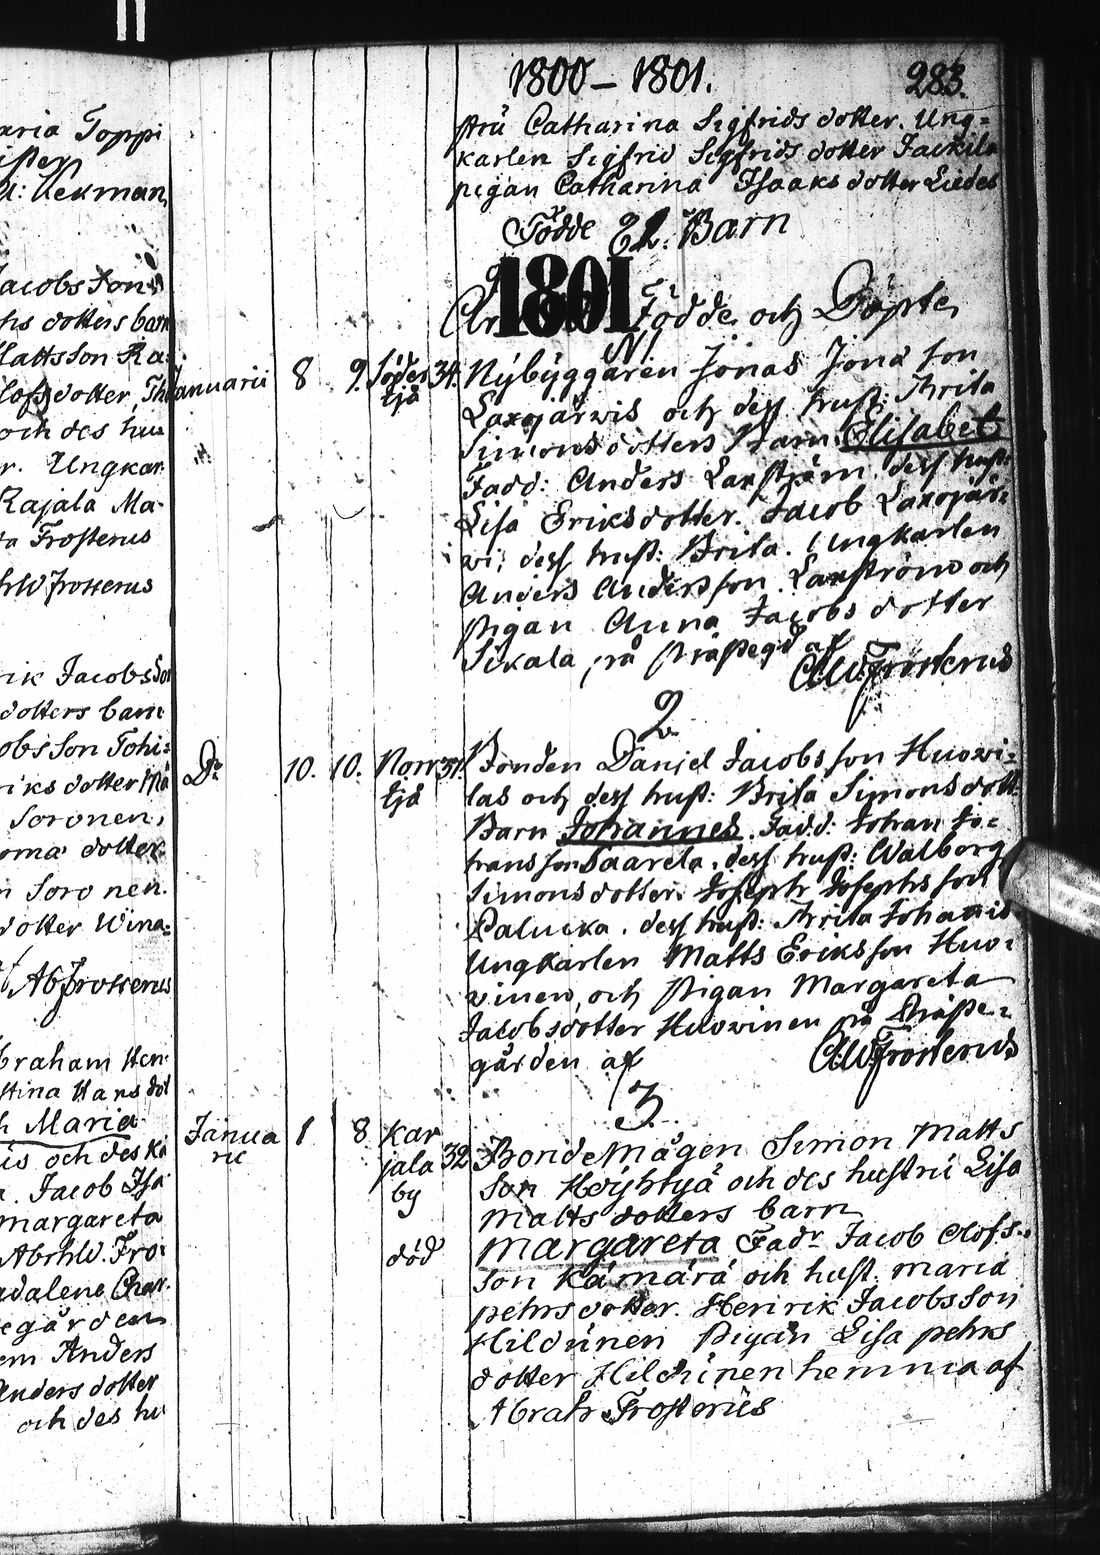 1800 – 1801.
283.
aria Toppi
Uckman
Jacobs Son
hs dotters barn
Mattsson Ra:
lofs dotter, Th
och des hu
r. Ungkar
Rajala Ma-
ta Frosterus
hW Frosterus
rik Jacobs Son
dotters barn
obs Son Tohi=
riks dotter Mä
Soronen,
oma dotter
n Soronen.
dotter Wina=
Ab Frosterus
braham Hen
stina Hans dot
h Maria
is och des
a. Jacob Isa
margareta
AbrhW. Fro:
adalena Char
egården
em Anders
Anders dotter
och des hu
strü Catharina Sigfrids dotter. Ung=
karlen Sigfrid Sigfrids dotter Jackila
pigan Catharina Isaaks dotter Liedes
Födde 82. Barn
1801
Födde och Döpte,
N 1
Januarii 8 9. Söder 34. Nýbýggaren Jonas Jona Son
tjä
Laxojärwis och dess hust: Brita
Simonsdotters Barn Elisabet
Fadd: Anders Laxström, dess hust:
Lisa Eriksdotter. Jacob Laxojär=
wi, dess hust: Brita. Ungkarlen
Anders Andersson Laxström och
pigan Anna Jacobs dotter
Sikala, på Prästegd af
AW Frosterus
2.
Do 10. 10. Norr 37. Bonden Daniel Jacobsson Huowi=
tjä
las och dess hust: Brita Simonsdott:
Barn Johannes. Fadd: Johan Jo=
hansson Saarela. dess hust: Walborg
Simonsdotter. Joseph Josephsson
Palucka. dess hust: Brita Johans
Ungkarlen Matts Eriksson Huo=
winen, och pigan Margareta
Jacobsdotter Huowinen på Präste=
gården af AW Frosterus
3.
Janua 1 8 Kar
rie
jala 32
by
död
BondeMågen Simon Matts
Son Höýhtyä och des hustrü Lisa
Matts dotters barn
Margareta Fadr Jacob Olofs=
Son Kämärä och hust. maria
pehrs dotter. Henrik Jacobs Son
Hildünen Pigan Lisa pehrs
dotter Hildünen hemma af
Abrah Frosterüs